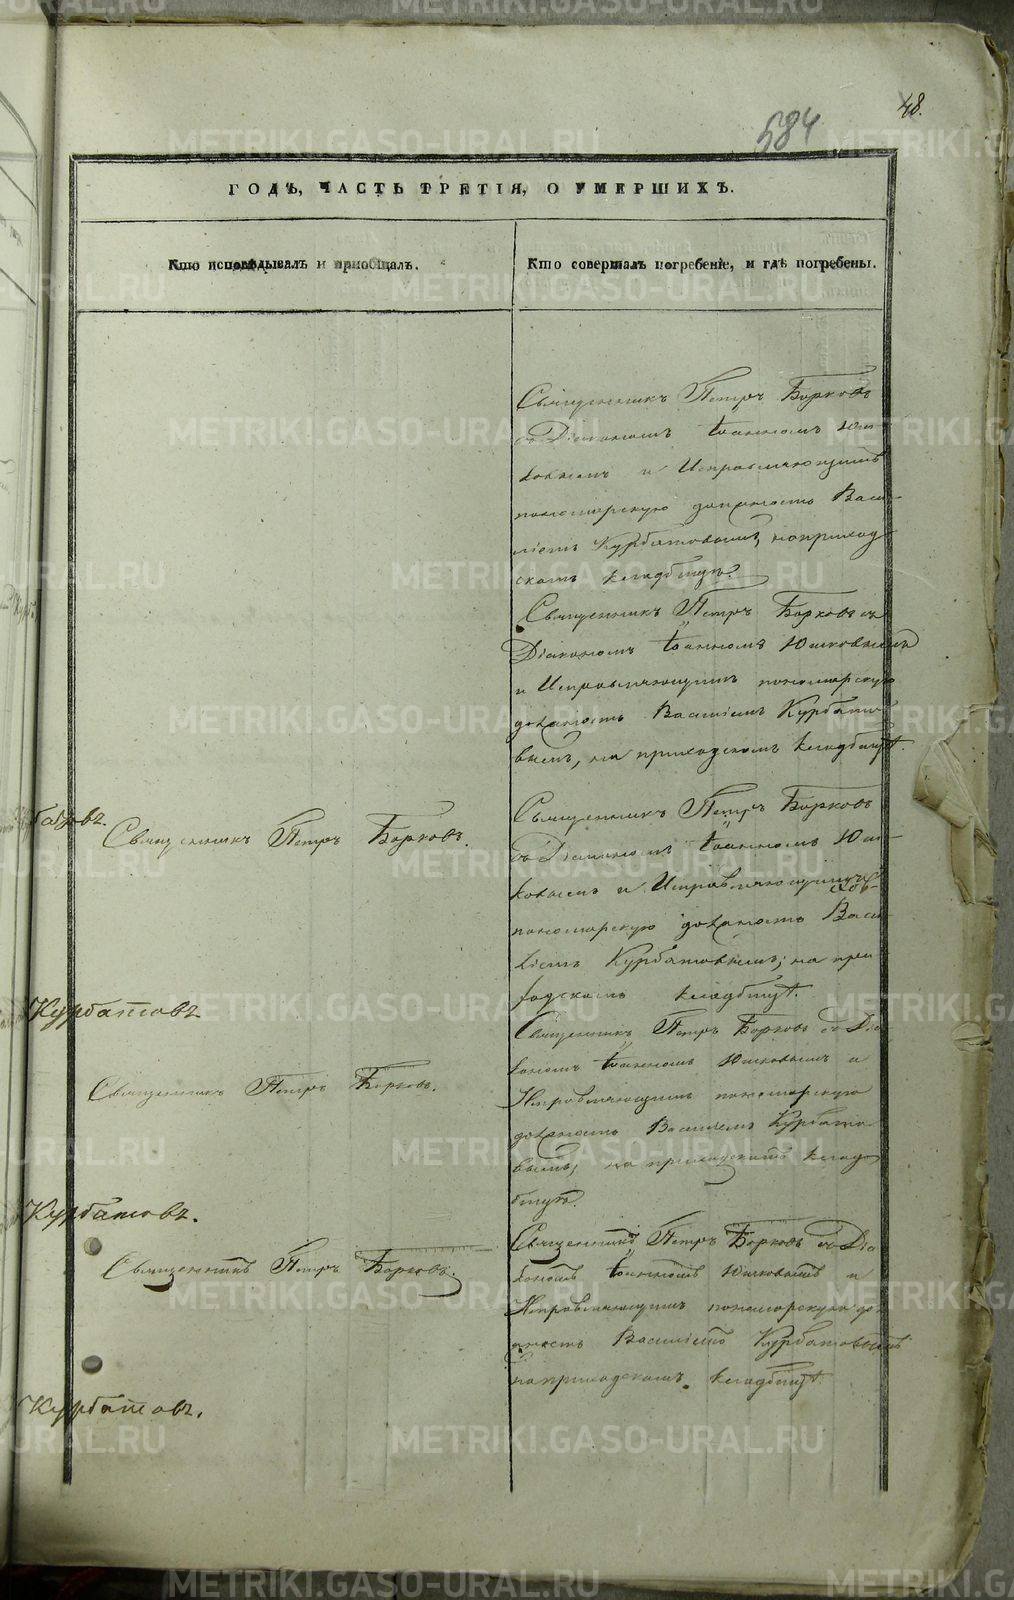 48.
584
ГОДЪ, ЧАСТЬ ТРЕТІЯ, О УМЕРШИХЪ.
Кто исповѣдывалъ и приобщалъ.
Кто совершалъ погребеніе, и гдѣ погребены.
Священникъ Петръ Борковъ
съ Діакономъ Іоанномъ Юш-
ковымъ и Исправляющимъ
пономарскую должность Васи-
ліемъ Курбатовымъ, на приход-
скомъ кладбищѣ.
Священникъ Петръ Борковъ съ
Діакономъ Іоанномъ Юшковымъ
и Исправляющимъ пономарскую
должность Василіемъ Курбато-
вымъ, на приходскомъ кладбищѣ.
Священникъ Петръ Борковъ.
Священникъ Петръ Борковъ
съ Діакономъ Іоанномъ Юш-
ковымъ и Исправляющимъ
пономарскую должность Васи-
ліемъ Курбатовымъ, на при
ходскомъ кладбищѣ.
Курбатовъ
Священникъ Петръ Борковъ.
Священникъ Петръ Борковъ съ Діа
кономъ Іоанномъ Юшковымъ и
Исправляющимъ пономарскую
должность Василіемъ Курбато-
вымъ, на приходскомъ клад
бищѣ.
Курбатовъ.
Священникъ Петръ Борковъ.
Священникъ Петръ Борковъ съ Діа
кономъ Іоанномъ Юшковымъ и
Исправляющимъ пономарскую дол
жность Василіемъ Курбатовымъ
на приходскомъ кладбищѣ.
Курбатовъ.
METRIKI.GASO-URAL.RU